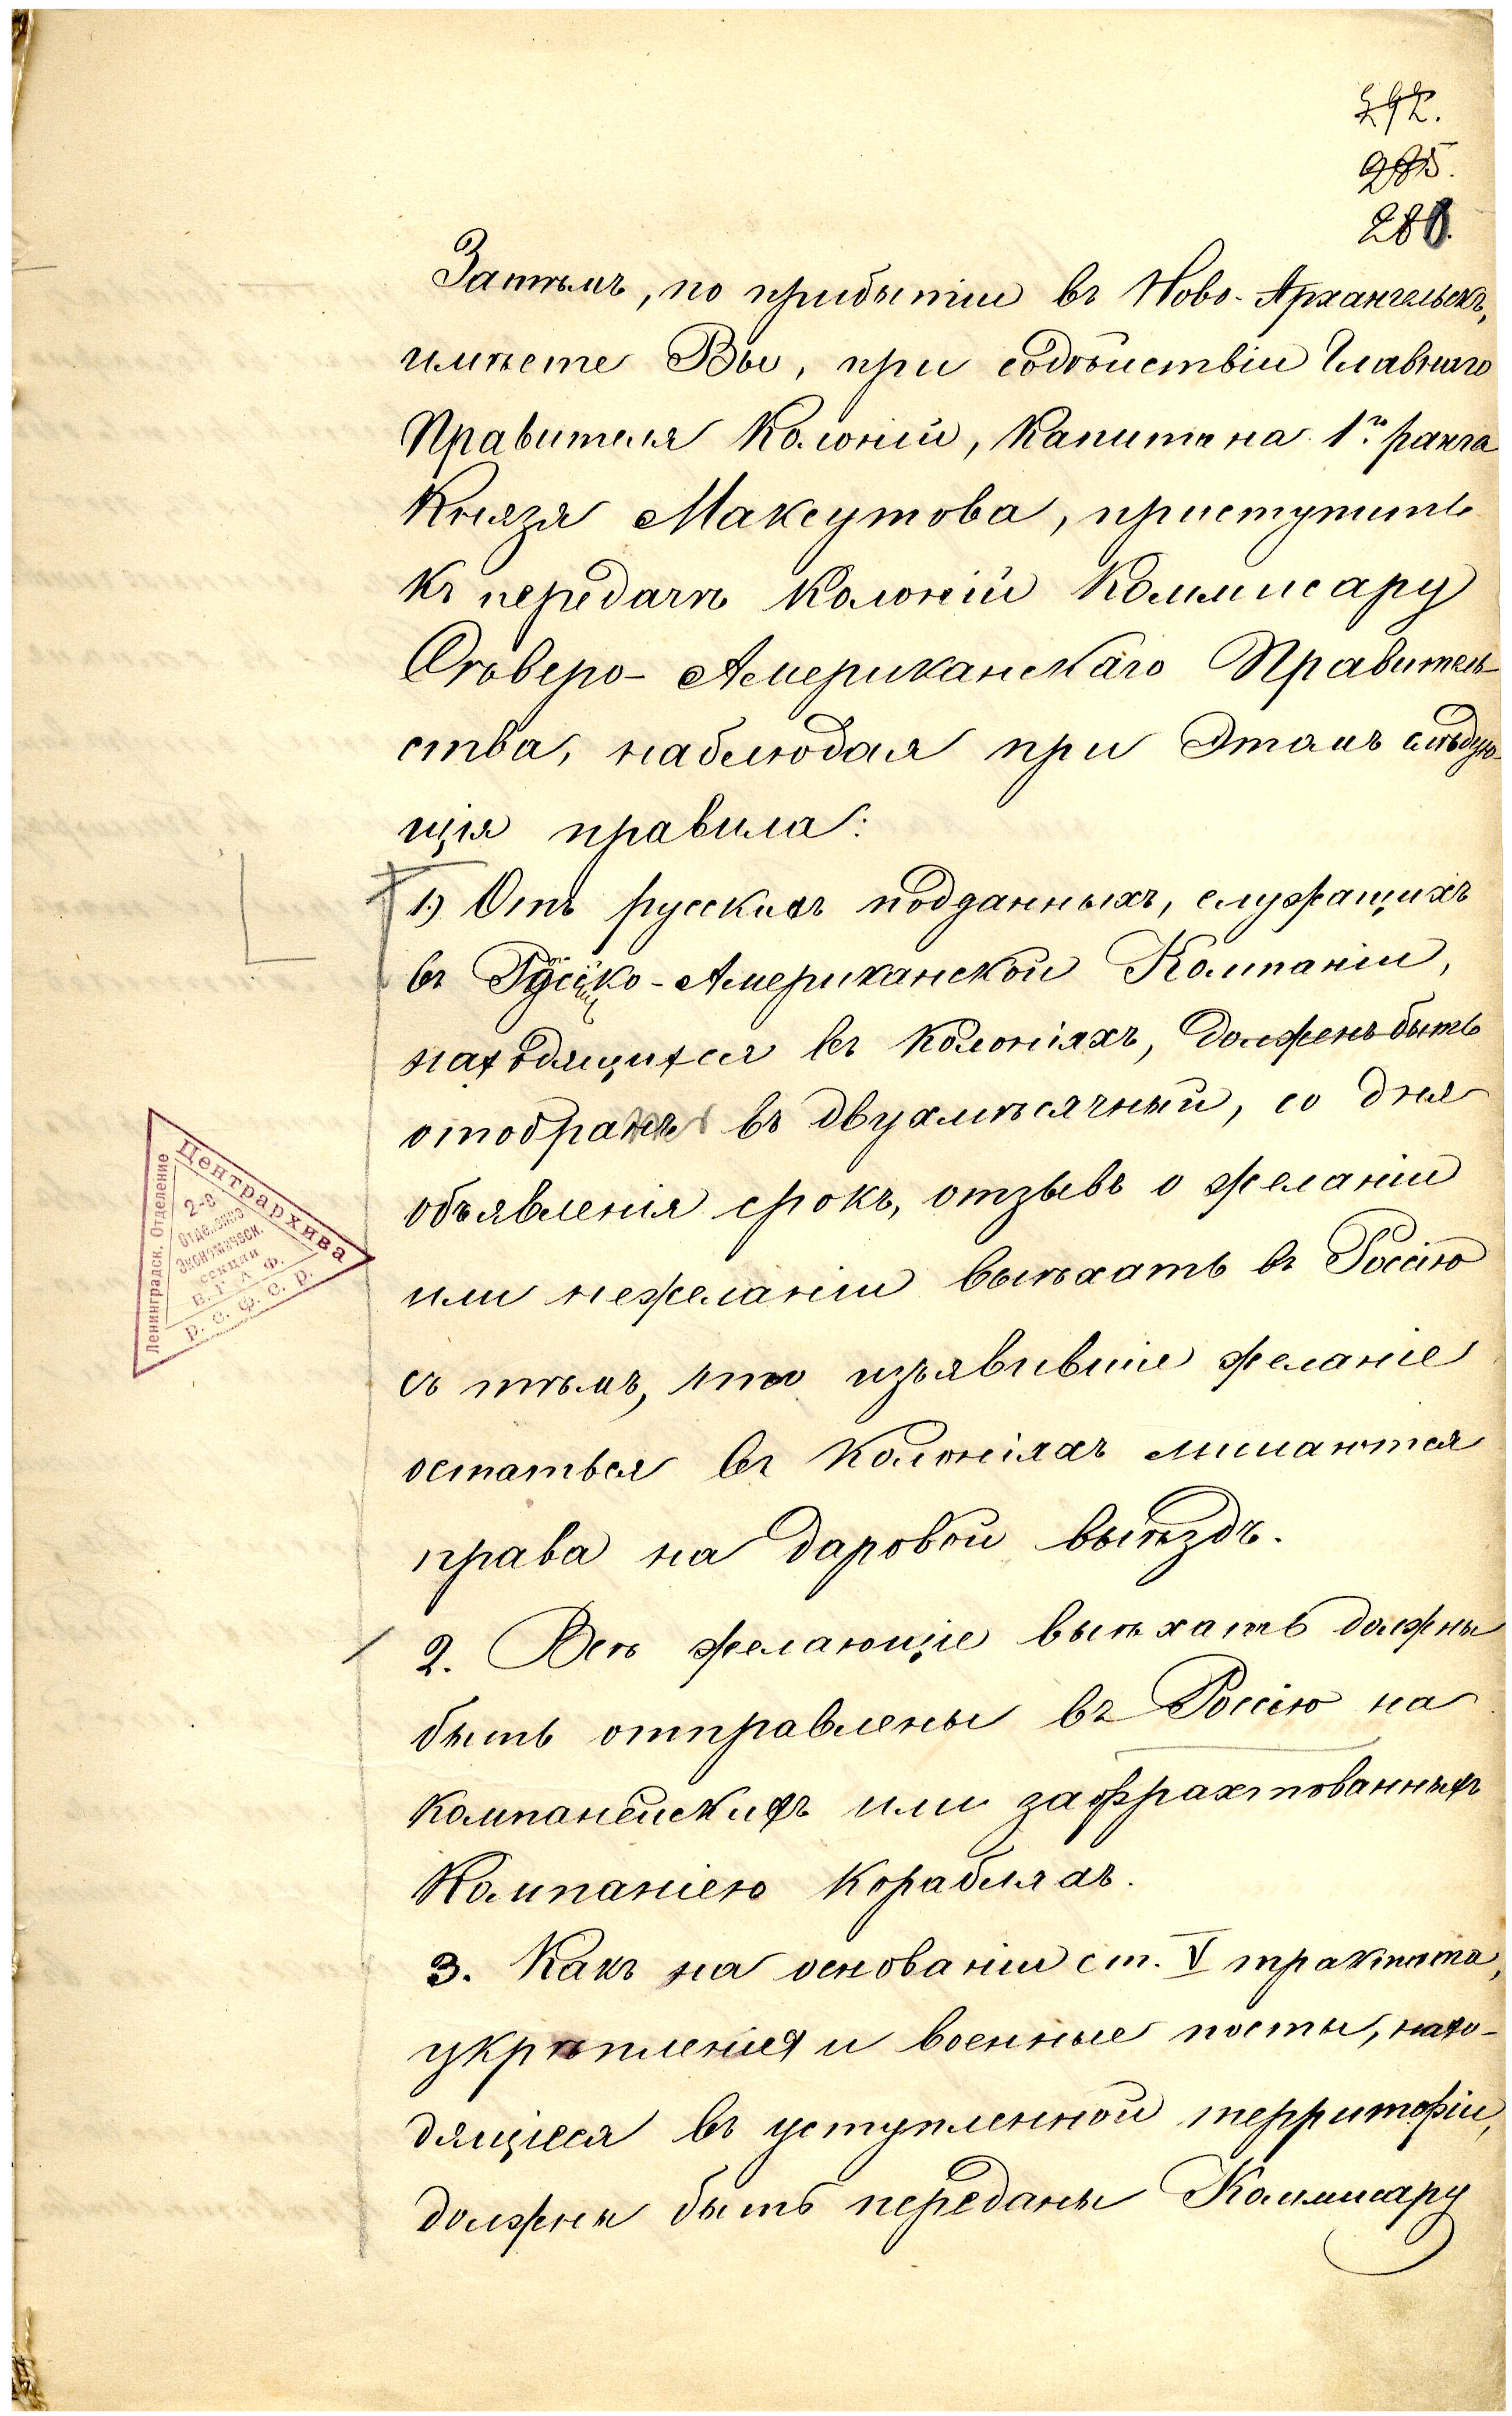 292.
285.
288.
Затѣмъ, по прибытіи въ Ново-Архангельскъ,
имѣете Вы, при содѣйствіи Главнаго
Правителя Колоній, Капитана 1го ранга
Князя Максутова, приступить
къ передачѣ Колоній Коммисару
Сѣверо-Американскаго Правитель-
ства, наблюдая при этомъ слѣдую-
щія правила:
1.) Отъ русскихъ подданныхъ, служащихъ
въ Россійско-Американской Компаніи,
находящихся въ Колоніяхъ, долженъ быть
отобранъ въ двухмѣсячный, со дня
объявленія срокъ, отзывъ о желаніи
или нежеланіи выѣхать въ Россію
съ тѣмъ, что изъявившіе желаніе
остаться въ Колоніяхъ лишаются
права на даровой выѣздъ.
2. Всѣ желающіе выѣхать должны
быть отправлены въ Россію на
компанейскихъ или зафрахтованныхъ
Компаніею корабляхъ.
3. Какъ на основаніи ст. V трактата,
укрѣпленія и военные посты, нахо-
дящіеся въ уступленной территоріи,
должны быть переданы Коммисару
Центрархива
Ленинградск. Отделение
2-е
Отделение
Экономическ.
секции
Е. Г. А. Ф.
Р. С. Ф. С. Р.